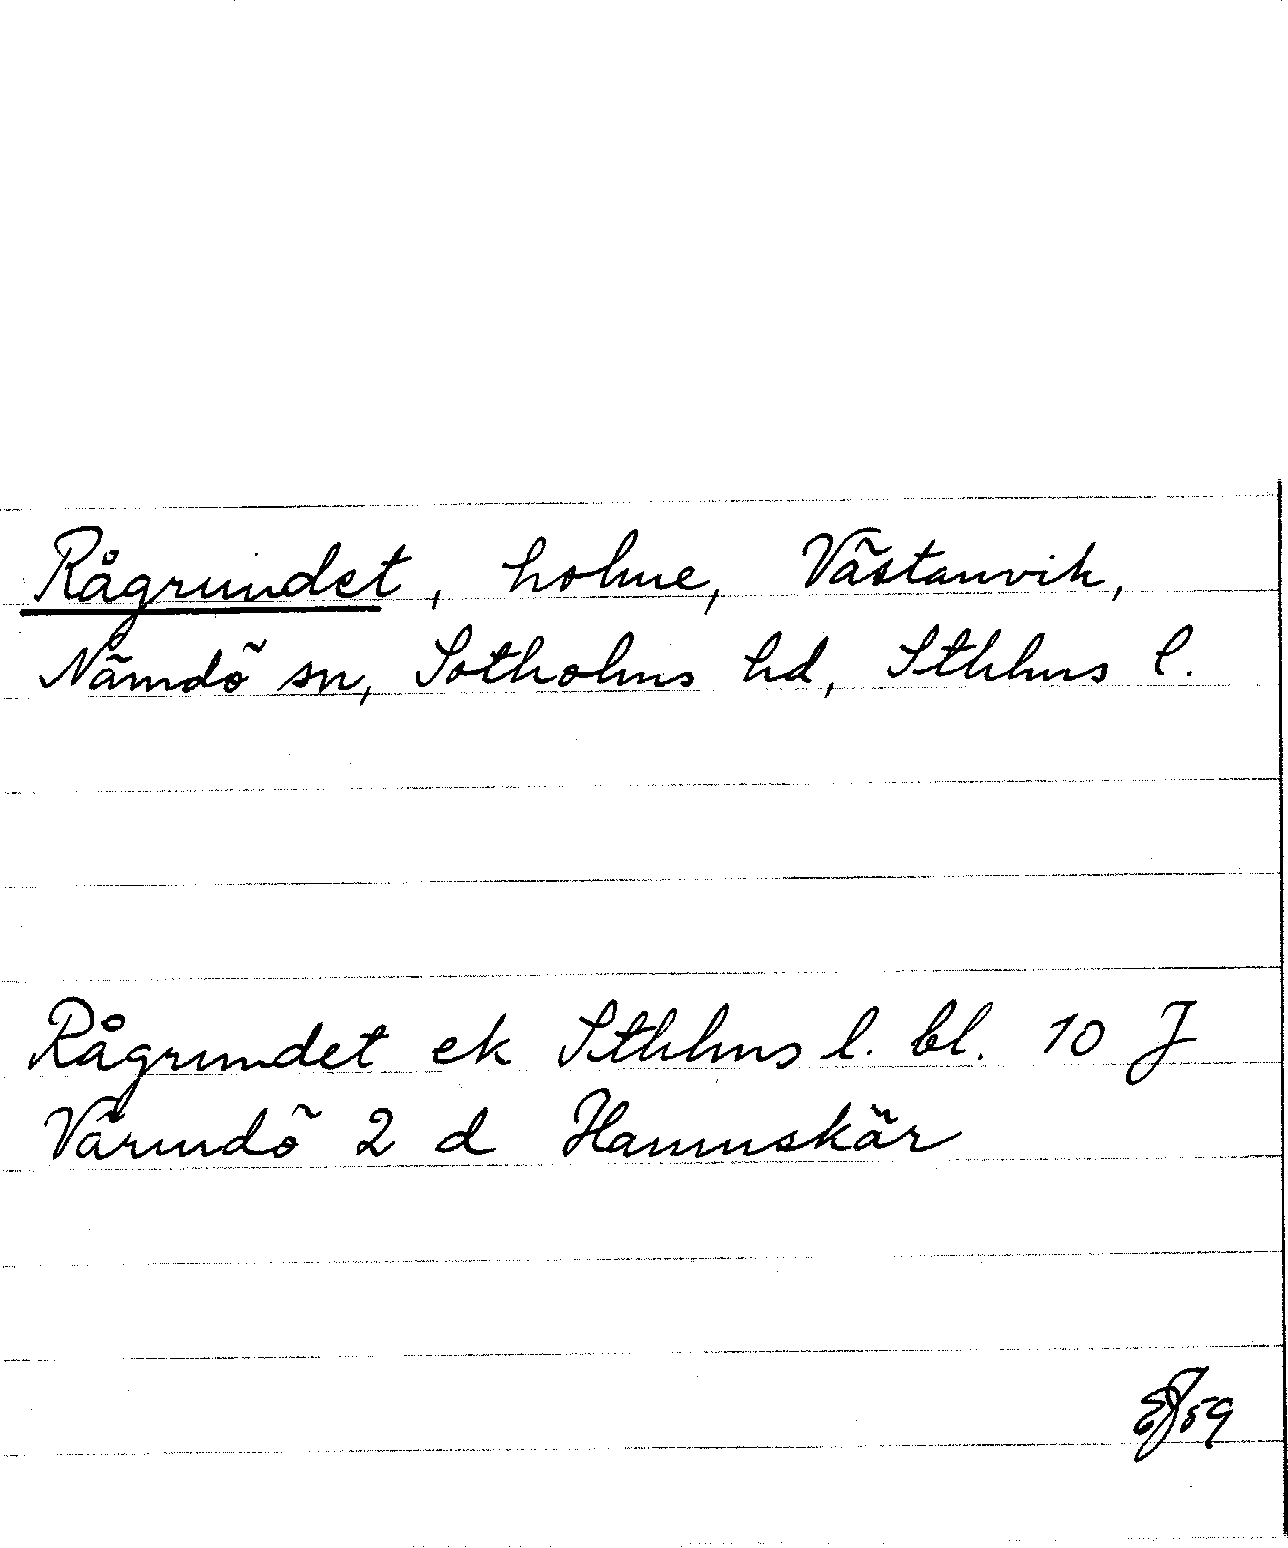 Rågrundet, holme, Västanvik,
Nämdö sn, Sotholms hd, Sthlms l.
Rågrundet ek Sthlms l. bl. 10 J
Värmdö 2 d Hamnskär
59